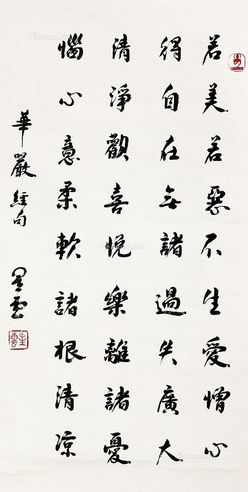 若美若惡不生愛憎心
得自在無諸過失廣大
清淨歡喜悅樂離諸憂
惱心意柔軟諸根清涼
華嚴經句
星雲